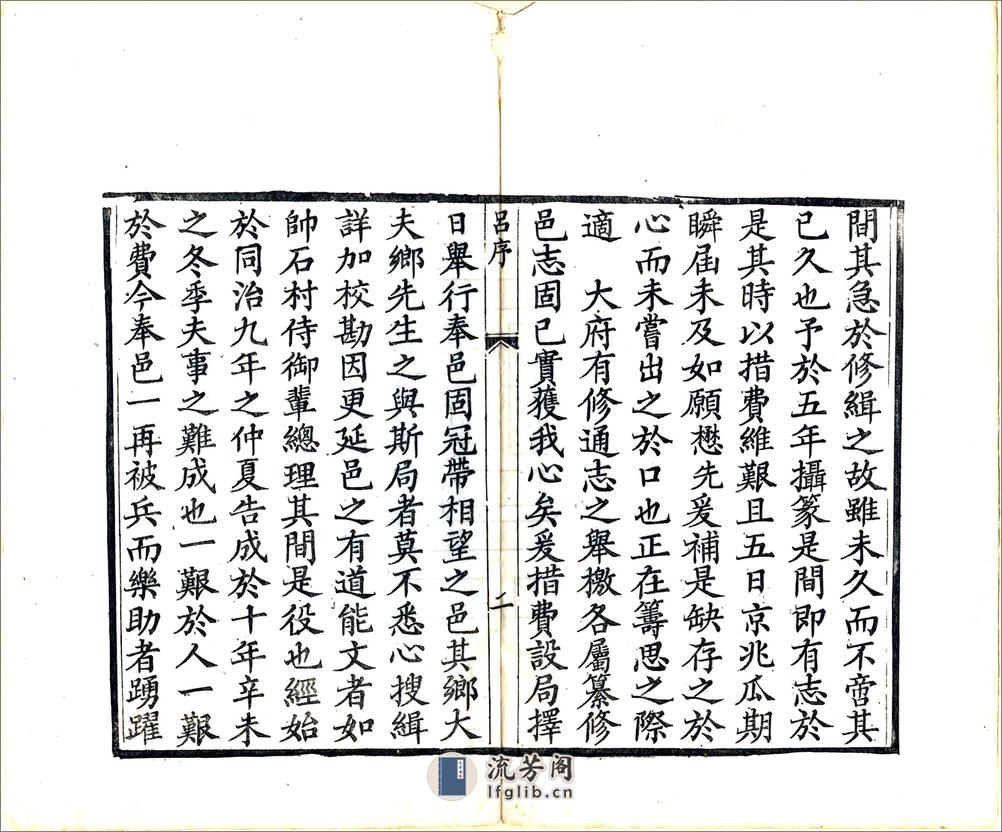 間其急於修緝之故雖未久而不啻其
已久也予於五年攝篆是間即有志於
是其時以措費維艱且五日京兆瓜期
瞬屆未及如願懋先爰補是缺存之於
心而未嘗出之於口也正在籌思之際
適　大府有修通志之舉檄各屬纂修
邑志固已實獲我心矣爰措費設局擇
呂序
二
日舉行奉邑固冠帶相望之邑其鄉大
夫鄉先生之與斯局者莫不悉心搜緝
詳加校勘因更延邑之有道能文者如
帥石村侍御輩總理其間是役也經始
於同治九年之仲夏告成於十年辛未
之冬季夫事之難成也一艱於人一艱
於費今奉邑一再被兵而樂助者踴躍
流芳阁
lfglib.cn